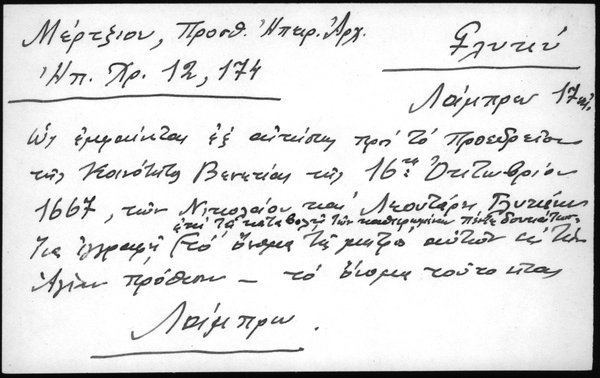 Μέρτζιου, Προσθ. Ἠπειρ. Ἀρχ.
Γλυκύ
Ἠπ. Χρ. 12, 174
Λάμπρω 17 αἰ.
Ὡς ἐμφαίνεται ἐξ αἰτήσεως πρὸς τὸ Προεδρεῖον
τῆς Κοινότητος Βενετίας τῆς 16ης Ὀκτωβρίου
1667, τῶν Νικολάου καὶ Λεοντάρη Γλυκέων
ἐπὶ τῇ καταβολῇ τῶν καθιερωμένων πέντε δουκάτων
νὰ ἐγγραφῇ τὸ ὄνομα τῆς μητρὸς αὐτῶν εἰς τὴν
Ἁγίαν πρόθεσιν – τὸ ὄνομα τοῦτο ἦτο
Λάμπρω.